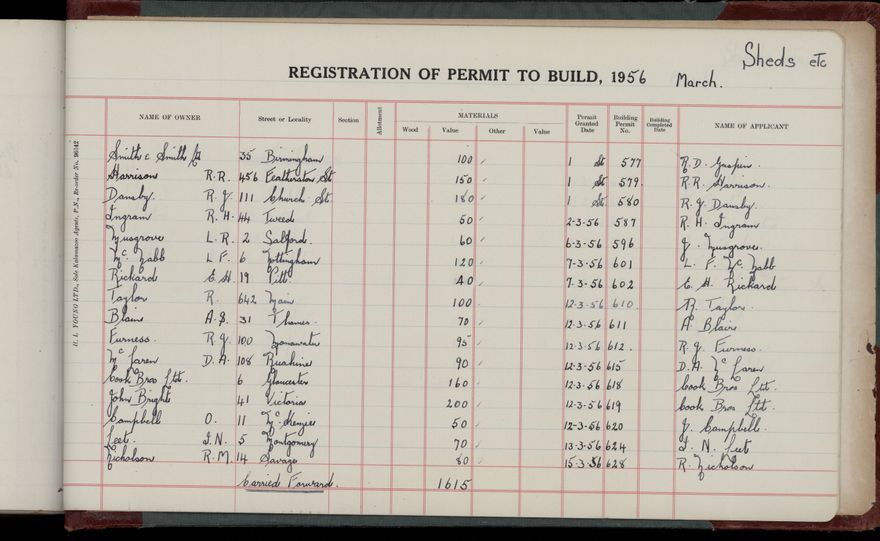 Sheds etc
REGISTRATION OF PERMIT TO BUILD, 1956 March.
NAME OF OWNER Street or Locality Section Allotment MATERIALS Permit Granted Date Building Permit No. Building Completed Date NAME OF APPLICANT
Wood Value Other Value
Smith & Smith Ltd 35 Birmingham 100 ✓ 1 St 577 R. D. Gaspin.
Harrison R.R. 456 Featherston St 150 ✓ 1 St 579. R.R. Harrison.
Dansby. R. J. 111 Church St. 180 ✓ 1 St 580 R. J Dansby.
Ingram R. H. 44 Tweed 50 ✓ 2-3-56 587 R. H. Ingram
Musgrove L. R. 2 Salford. 60 ✓ 6-3-56 596 J. Musgrove.
Mc. Nabb L F. 6 Nottingham 120 ✓ 7-3-56 601 L. F. Mc. Nabb
Rickard E. H. 19 Pitt. 40 ✓ 7-3-56 602 E. H. Rickard
Taylor R. 642 Main 100. 12-3-56 610. R. Taylor.
Blair A. S. 31 Thames. 70 ✓ 12-3-56 611 A Blair
Furness. R. J. 100 Manawatu 95 ✓ 12-3-56 612. R. J. Furness.
Mc Laren D. A. 108 Ruahine 90 ✓ 12-3-56 615 D. A. Mc Laren
Cook Bros Ltd. 6 Gloucester 160 ✓ 12-3-56 618 Cook Bros Ltd.
John Brights 41 Victoria 200 ✓ 12-3-56 619 Cook Bros Ltd.
Campbell O. 11 Mc. Kenzie 50 ✓ 12-3-56 620 J. Campbell.
Leet. I. N. 5 Montgomery 70 ✓ 13-3-56 624 I. N. Leet
Nicholson R. M. 14 Savage 80 ✓ 15-3-56 628 R. Nicholson
Carried Forward. 1615
H. L. YOUNG LTD., Sole Kalamazoo Agents, P.N., Re-order No. 96142